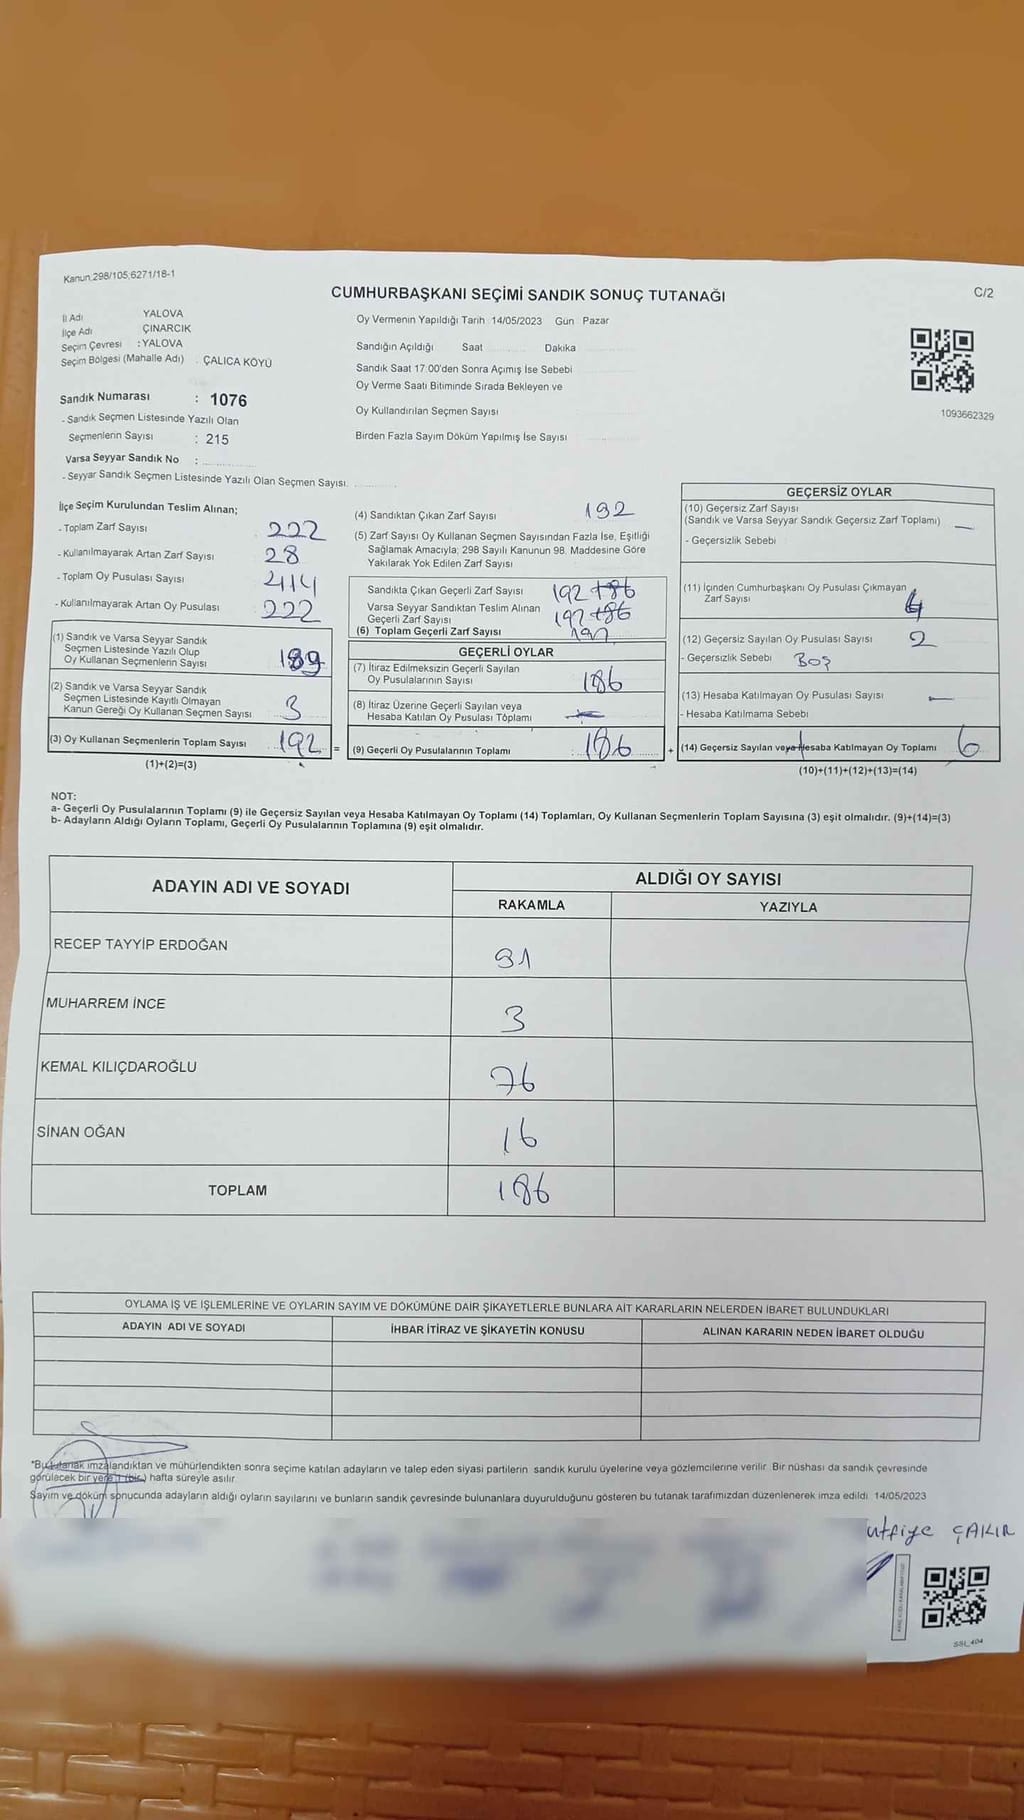 Kanun.298/105;6271/18-1
C/2
CUMHURBAŞKANI SEÇİMİ SANDIK SONUÇ TUTANAĞI
İl Adı YALOVA
İlçe Adı ÇINARCIK
Seçim Çevresi : YALOVA
Seçim Bölgesi (Mahalle Adı) : ÇALICA KÖYÜ
Sandık Numarası : 1076
- Sandık Seçmen Listesinde Yazılı Olan
Seçmenlerin Sayısı : 215
Varsa Seyyar Sandık No :
- Seyyar Sandık Seçmen Listesinde Yazılı Olan Seçmen Sayısı.
Oy Vermenin Yapıldığı Tarih : 14/05/2023 Gün Pazar
Sandığın Açıldığı Saat Dakika
Sandık Saat 17.00'den Sonra Açımış İse Sebebi
Oy Verme Saati Bitiminde Sırada Bekleyen ve
Oy Kullandırılan Seçmen Sayısı
Birden Fazla Sayım Döküm Yapılmış İse Sayısı
1093662329
İlçe Seçim Kurulundan Teslim Alınan;
- Toplam Zarf Sayısı 222
- Kullanılmayarak Artan Zarf Sayısı 28
- Toplam Oy Pusulası Sayısı 414
- Kullanılmayarak Artan Oy Pusulası 222
(1) Sandık ve Varsa Seyyar Sandık
Seçmen Listesinde Yazılı Olup
Oy Kullanan Seçmenlerin Sayısı 189
(2) Sandık ve Varsa Seyyar Sandık
Seçmen Listesinde Kayıtlı Olmayan
Kanun Gereği Oy Kullanan Seçmen Sayısı 3
(3) Oy Kullanan Seçmenlerin Toplam Sayısı 192 =
(1)+(2)=(3)
(4) Sandıktan Çıkan Zarf Sayısı 192
(5) Zarf Sayısı Oy Kullanan Seçmen Sayısından Fazla İse, Eşitliği
Sağlamak Amacıyla; 298 Sayılı Kanunun 98. Maddesine Göre
Yakılarak Yok Edilen Zarf Sayısı
Sandıkta Çıkan Geçerli Zarf Sayısı 192 186
Varsa Seyyar Sandıktan Teslim Alınan
Geçerli Zarf Sayısı 192 186
(6) Toplam Geçerli Zarf Sayısı 192
GEÇERLİ OYLAR
(7) İtiraz Edilmeksizin Geçerli Sayılan
Oy Pusulalarının Sayısı 186
(8) İtiraz Üzerine Geçerli Sayılan veya
Hesaba Katılan Oy Pusulası Toplamı
(9) Geçerli Oy Pusulalarının Toplamı : 186 +
GEÇERSİZ OYLAR
(10) Geçersiz Zarf Sayısı
(Sandık ve Varsa Seyyar Sandık Geçersiz Zarf Toplamı) —
- Geçersizlik Sebebi
(11) İçinden Cumhurbaşkanı Oy Pusulası Çıkmayan
Zarf Sayısı 4
(12) Geçersiz Sayılan Oy Pusulası Sayısı 2
- Geçersizlik Sebebi Boş
(13) Hesaba Katılmayan Oy Pusulası Sayısı —
- Hesaba Katılmama Sebebi
(14) Geçersiz Sayılan veya Hesaba Katılmayan Oy Toplamı 6
(10)+(11)+(12)+(13)=(14)
NOT:
a- Geçerli Oy Pusulalarının Toplamı (9) ile Geçersiz Sayılan veya Hesaba Katılmayan Oy Toplamı (14) Toplamları, Oy Kullanan Seçmenlerin Toplam Sayısına (3) eşit olmalıdır. (9)+(14)=(3)
b- Adayların Aldığı Oyların Toplamı, Geçerli Oy Pusulalarının Toplamına (9) eşit olmalıdır.
ADAYIN ADI VE SOYADI
ALDIĞI OY SAYISI
RAKAMLA YAZIYLA
RECEP TAYYİP ERDOĞAN 91
MUHARREM İNCE 3
KEMAL KILIÇDAROĞLU 76
SİNAN OĞAN 16
TOPLAM 186
OYLAMA İŞ VE İŞLEMLERİNE VE OYLARIN SAYIM VE DÖKÜMÜNE DAİR ŞİKAYETLERLE BUNLARA AİT KARARLARIN NELERDEN İBARET BULUNDUKLARI
ADAYIN ADI VE SOYADI İHBAR İTİRAZ VE ŞİKAYETİN KONUSU ALINAN KARARIN NEDEN İBARET OLDUĞU
*Bu tutanak imzalandıktan ve mühürlendikten sonra seçime katılan adayların ve talep eden siyasi partilerin sandık kurulu üyelerine veya gözlemcilerine verilir. Bir nüshası da sandık çevresinde
görülecek bir yere 1 (bir) hafta süreyle asılır.
Sayım ve döküm sonucunda adayların aldığı oyların sayılarını ve bunların sandık çevresinde bulunanlara duyurulduğunu gösteren bu tutanak tarafımızdan düzenlenerek imza edildi. 14/05/2023
utfiye ÇAKIR
SSI_404